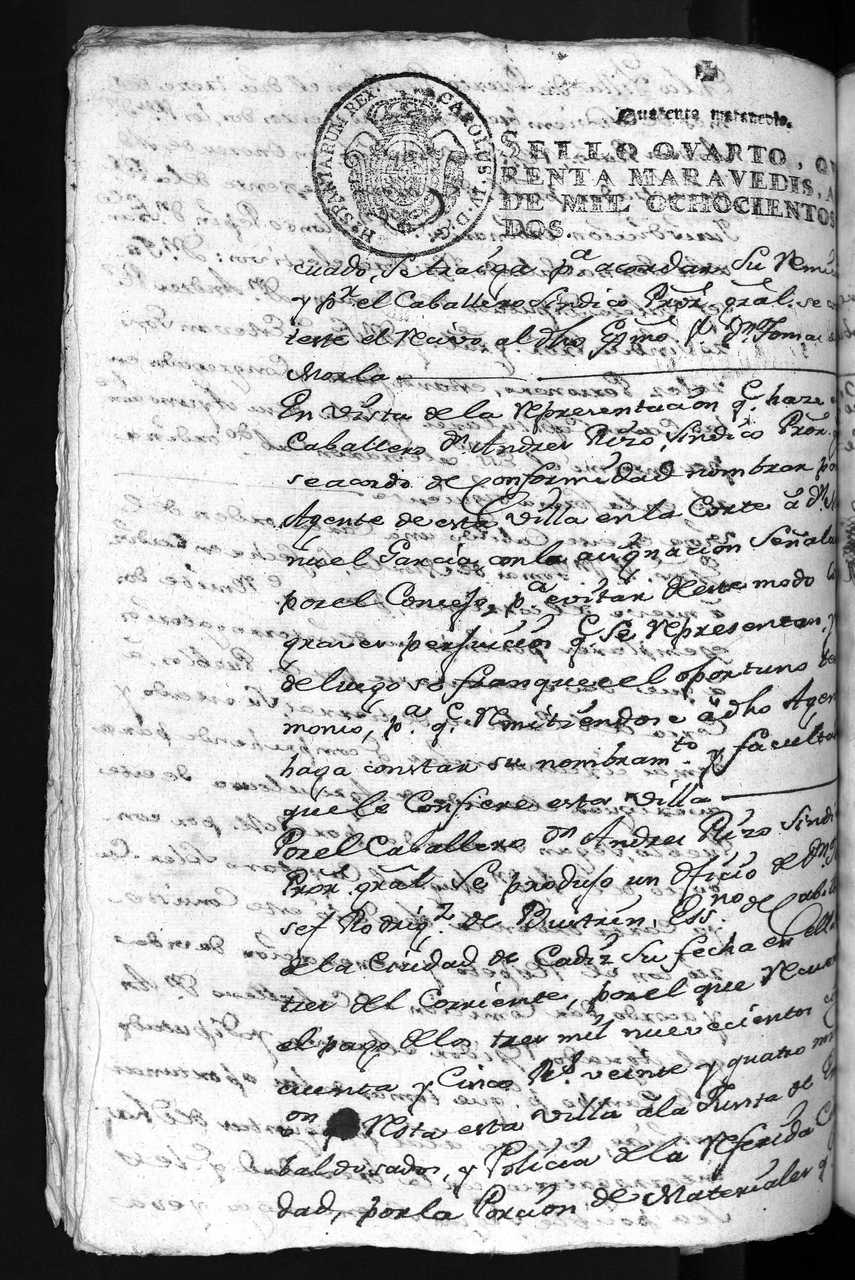 Quarenta maravedis.
HISPANIARUM REX. CAROLUS IV D. G.
SELLO QVARTO, QV
RENTA MARAVEDIS, A
DE MIL OCHOCIENTOS
DOS.
cuado, se traiga pª acordar su remi
y pr. el Caballero Sindico Pror. gral. se co
teste el recivo al dho Exmo. Sr. Dn. Tomas de
Morla
En vista de la representacion q.e haze el
Caballero Dn. Andres Rizo, Sindico Pror. g
se acordo de conformidad nombrar por
Agente de esta Villa en la Corte á Dn. Ma
nuel Garcia, con la asignacion señalada
por el Consejo, pª evitar de este modo lo
graves perjuicios q.e se representan, y
de luego se franquee el oportuno tes
monio, pª q.e remitiendose á dho Agen
haga constar su nombramto. y faculta
que le confiere esta Villa
Por el Caballero Dn. Andres Rizo Sindi
Pror. gral. se produjo un Oficio de Dn. Jo
sef Rodrigz. de Bustrin, Essno. de Cabil
de la Ciudad de Cadiz su fecha en el dia
tres del corriente, por el que recuer
el pago de los tres mil nuevecientos cin
cuenta y cinco rs. veinte y quatro mrs
on resta esta Villa á la Junta de En
baldosados, y Policia de la referida Ciu
dad, por la Porcion de Materiales q.